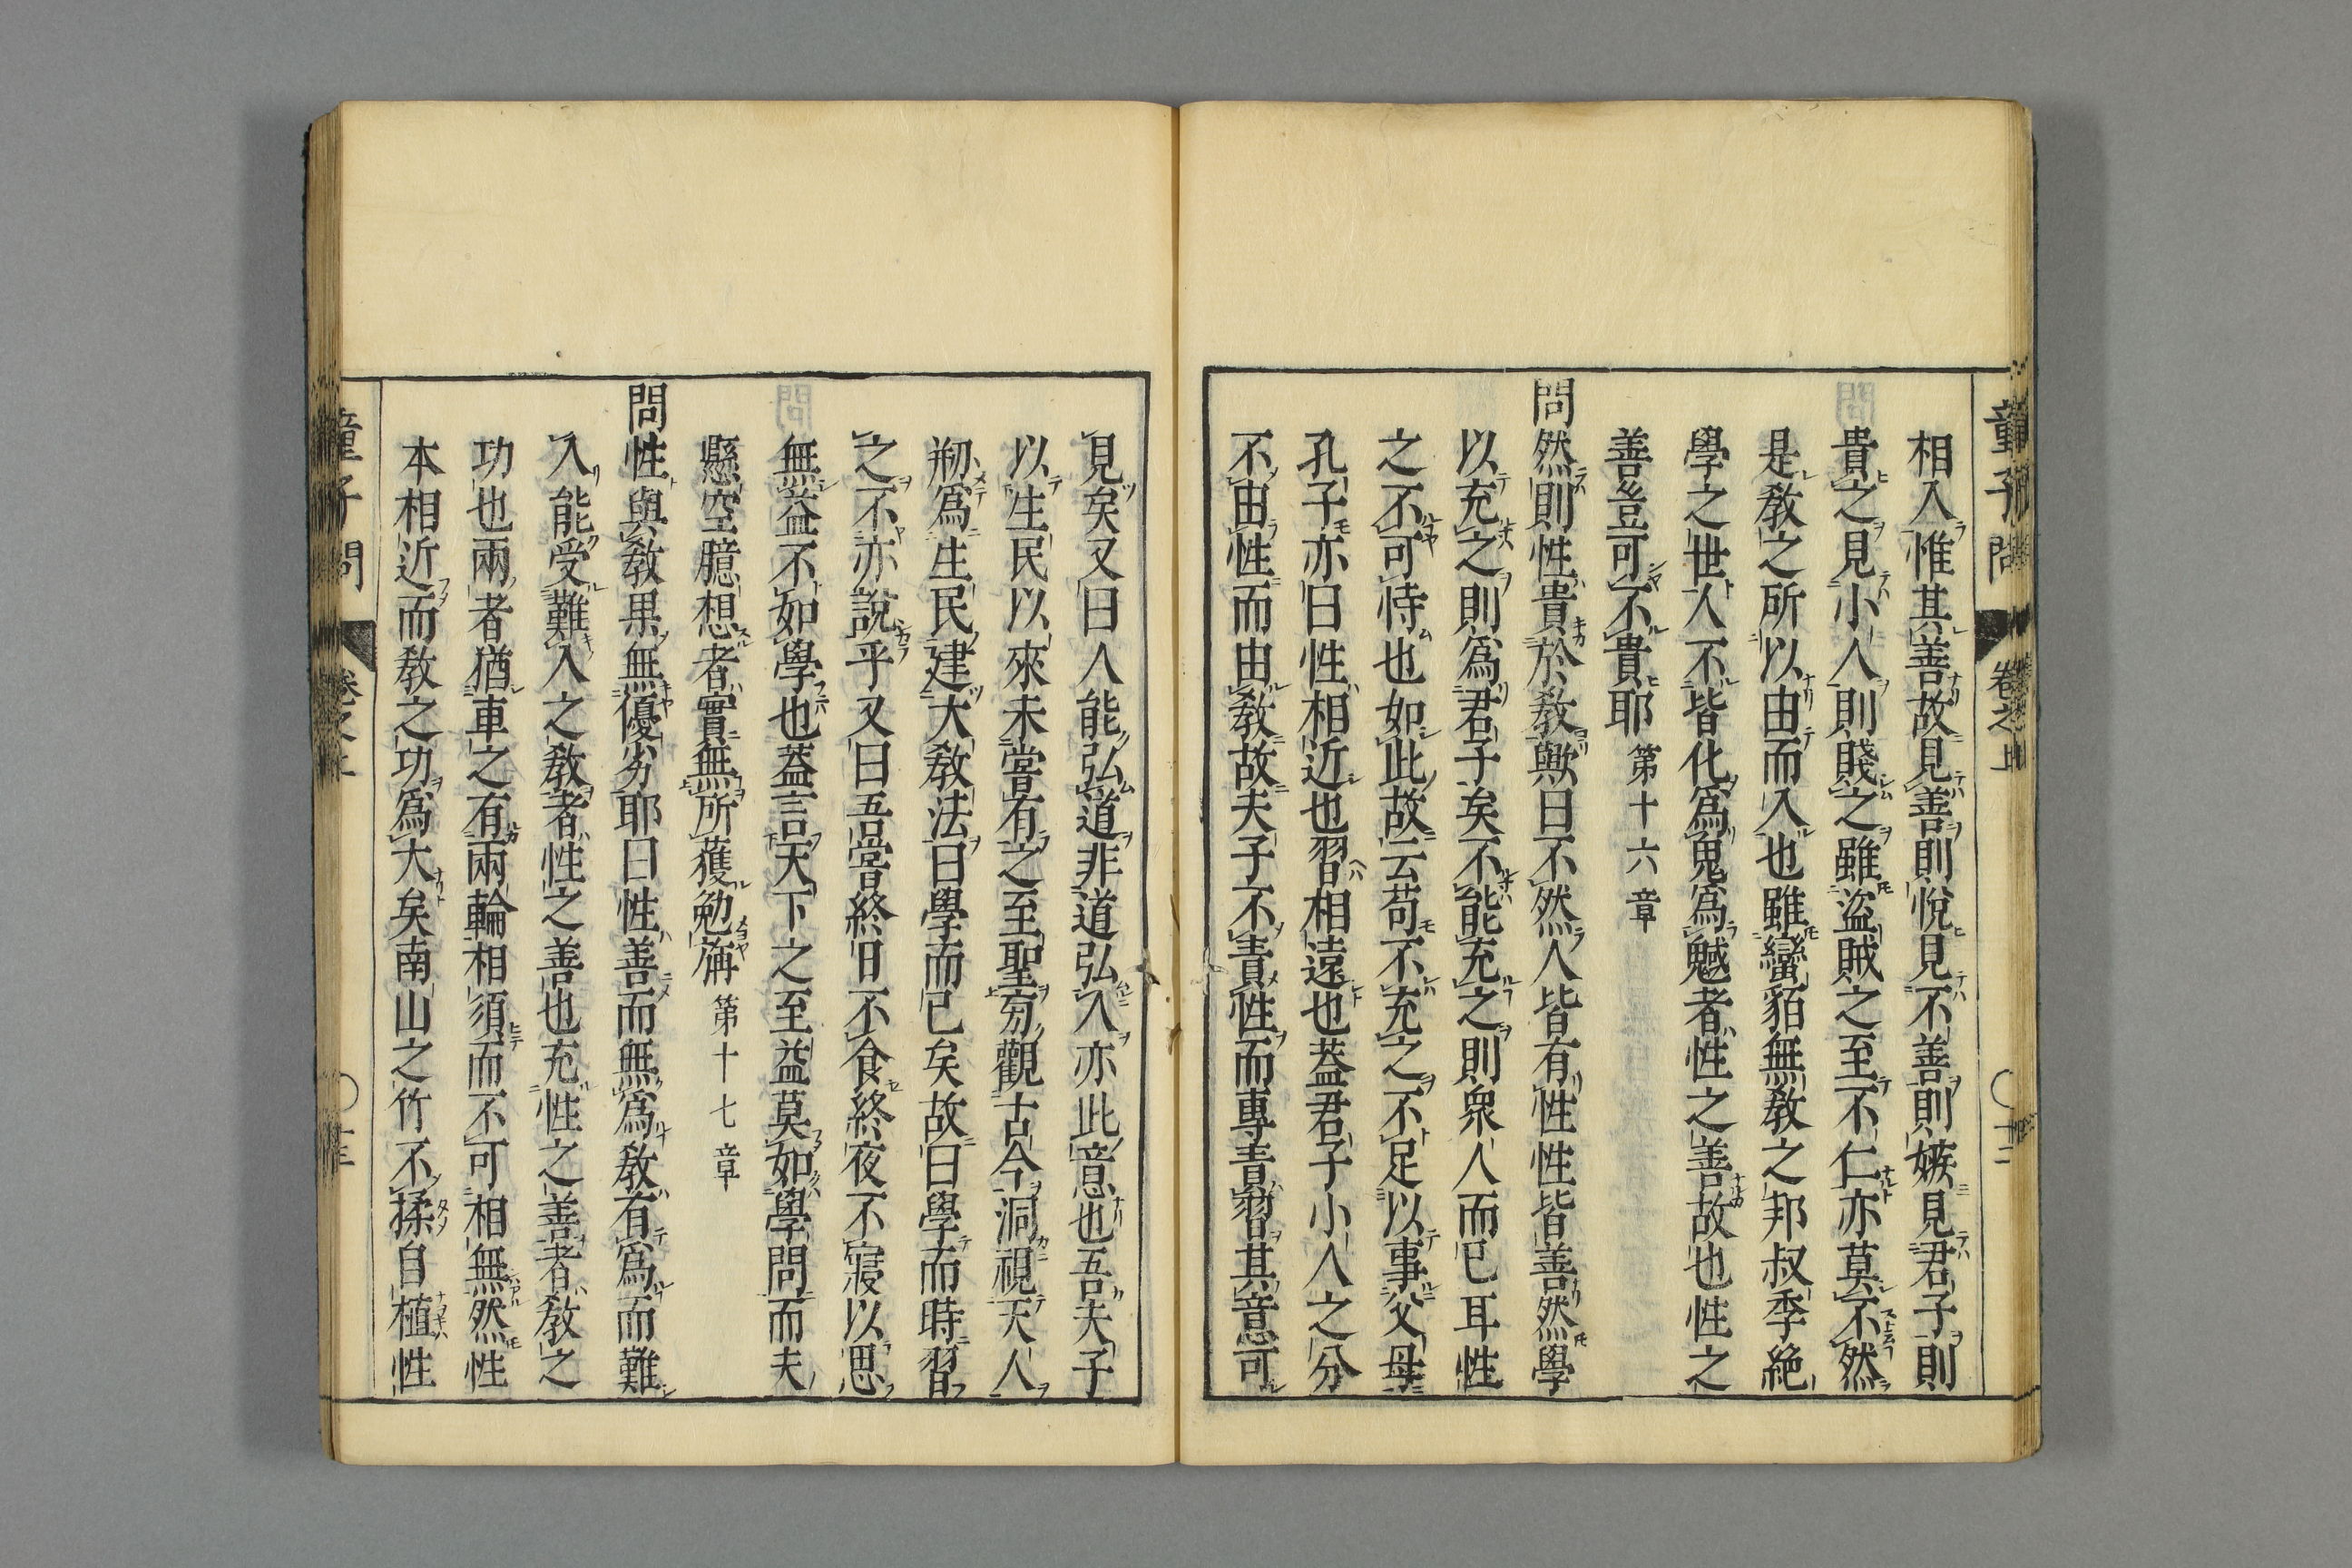 童子問 卷之上
相入惟其善故見善則悅見不善則嫉見君子則
貴之見小人則賤之雖盜賊之至不仁亦莫不然
是教之所以由而入也雖蠻貊無教之邦叔季絶
學之世人不皆化爲鬼爲魊者性之善故也性之
善豈可不貴耶 第十六章
問然則性貴於教歟曰不然人皆有性性皆善然學
以充之則爲君子矣不能充之則衆人而已耳性
之不可恃也如此故云苟不充之不足以事父母
孔子亦曰性相近也習相遠也蓋君子小人之分
不由性而由教故夫子不責性而專責習其意可
見矣又曰人能弘道非道弘人亦此意也吾夫子
以生民以來未嘗有之至聖旁觀古今洞視天人
剏爲生民建大教法曰學而已矣故曰學而時習
之不亦說乎又曰吾嘗終日不食終夜不寢以思
無益不如學也蓋言天下之至益莫如學問而夫
懸空臆想者實無所蒦勉旃 第十七章
問性與教果無優劣耶曰性善而無爲教有爲而難
入能受難入之教者性之善也充性之善者教之
功也兩者猶車之有兩輪相須而不可相無然性
本相近而教之功爲大矣南山之竹不揉自植性
童子問 卷之上